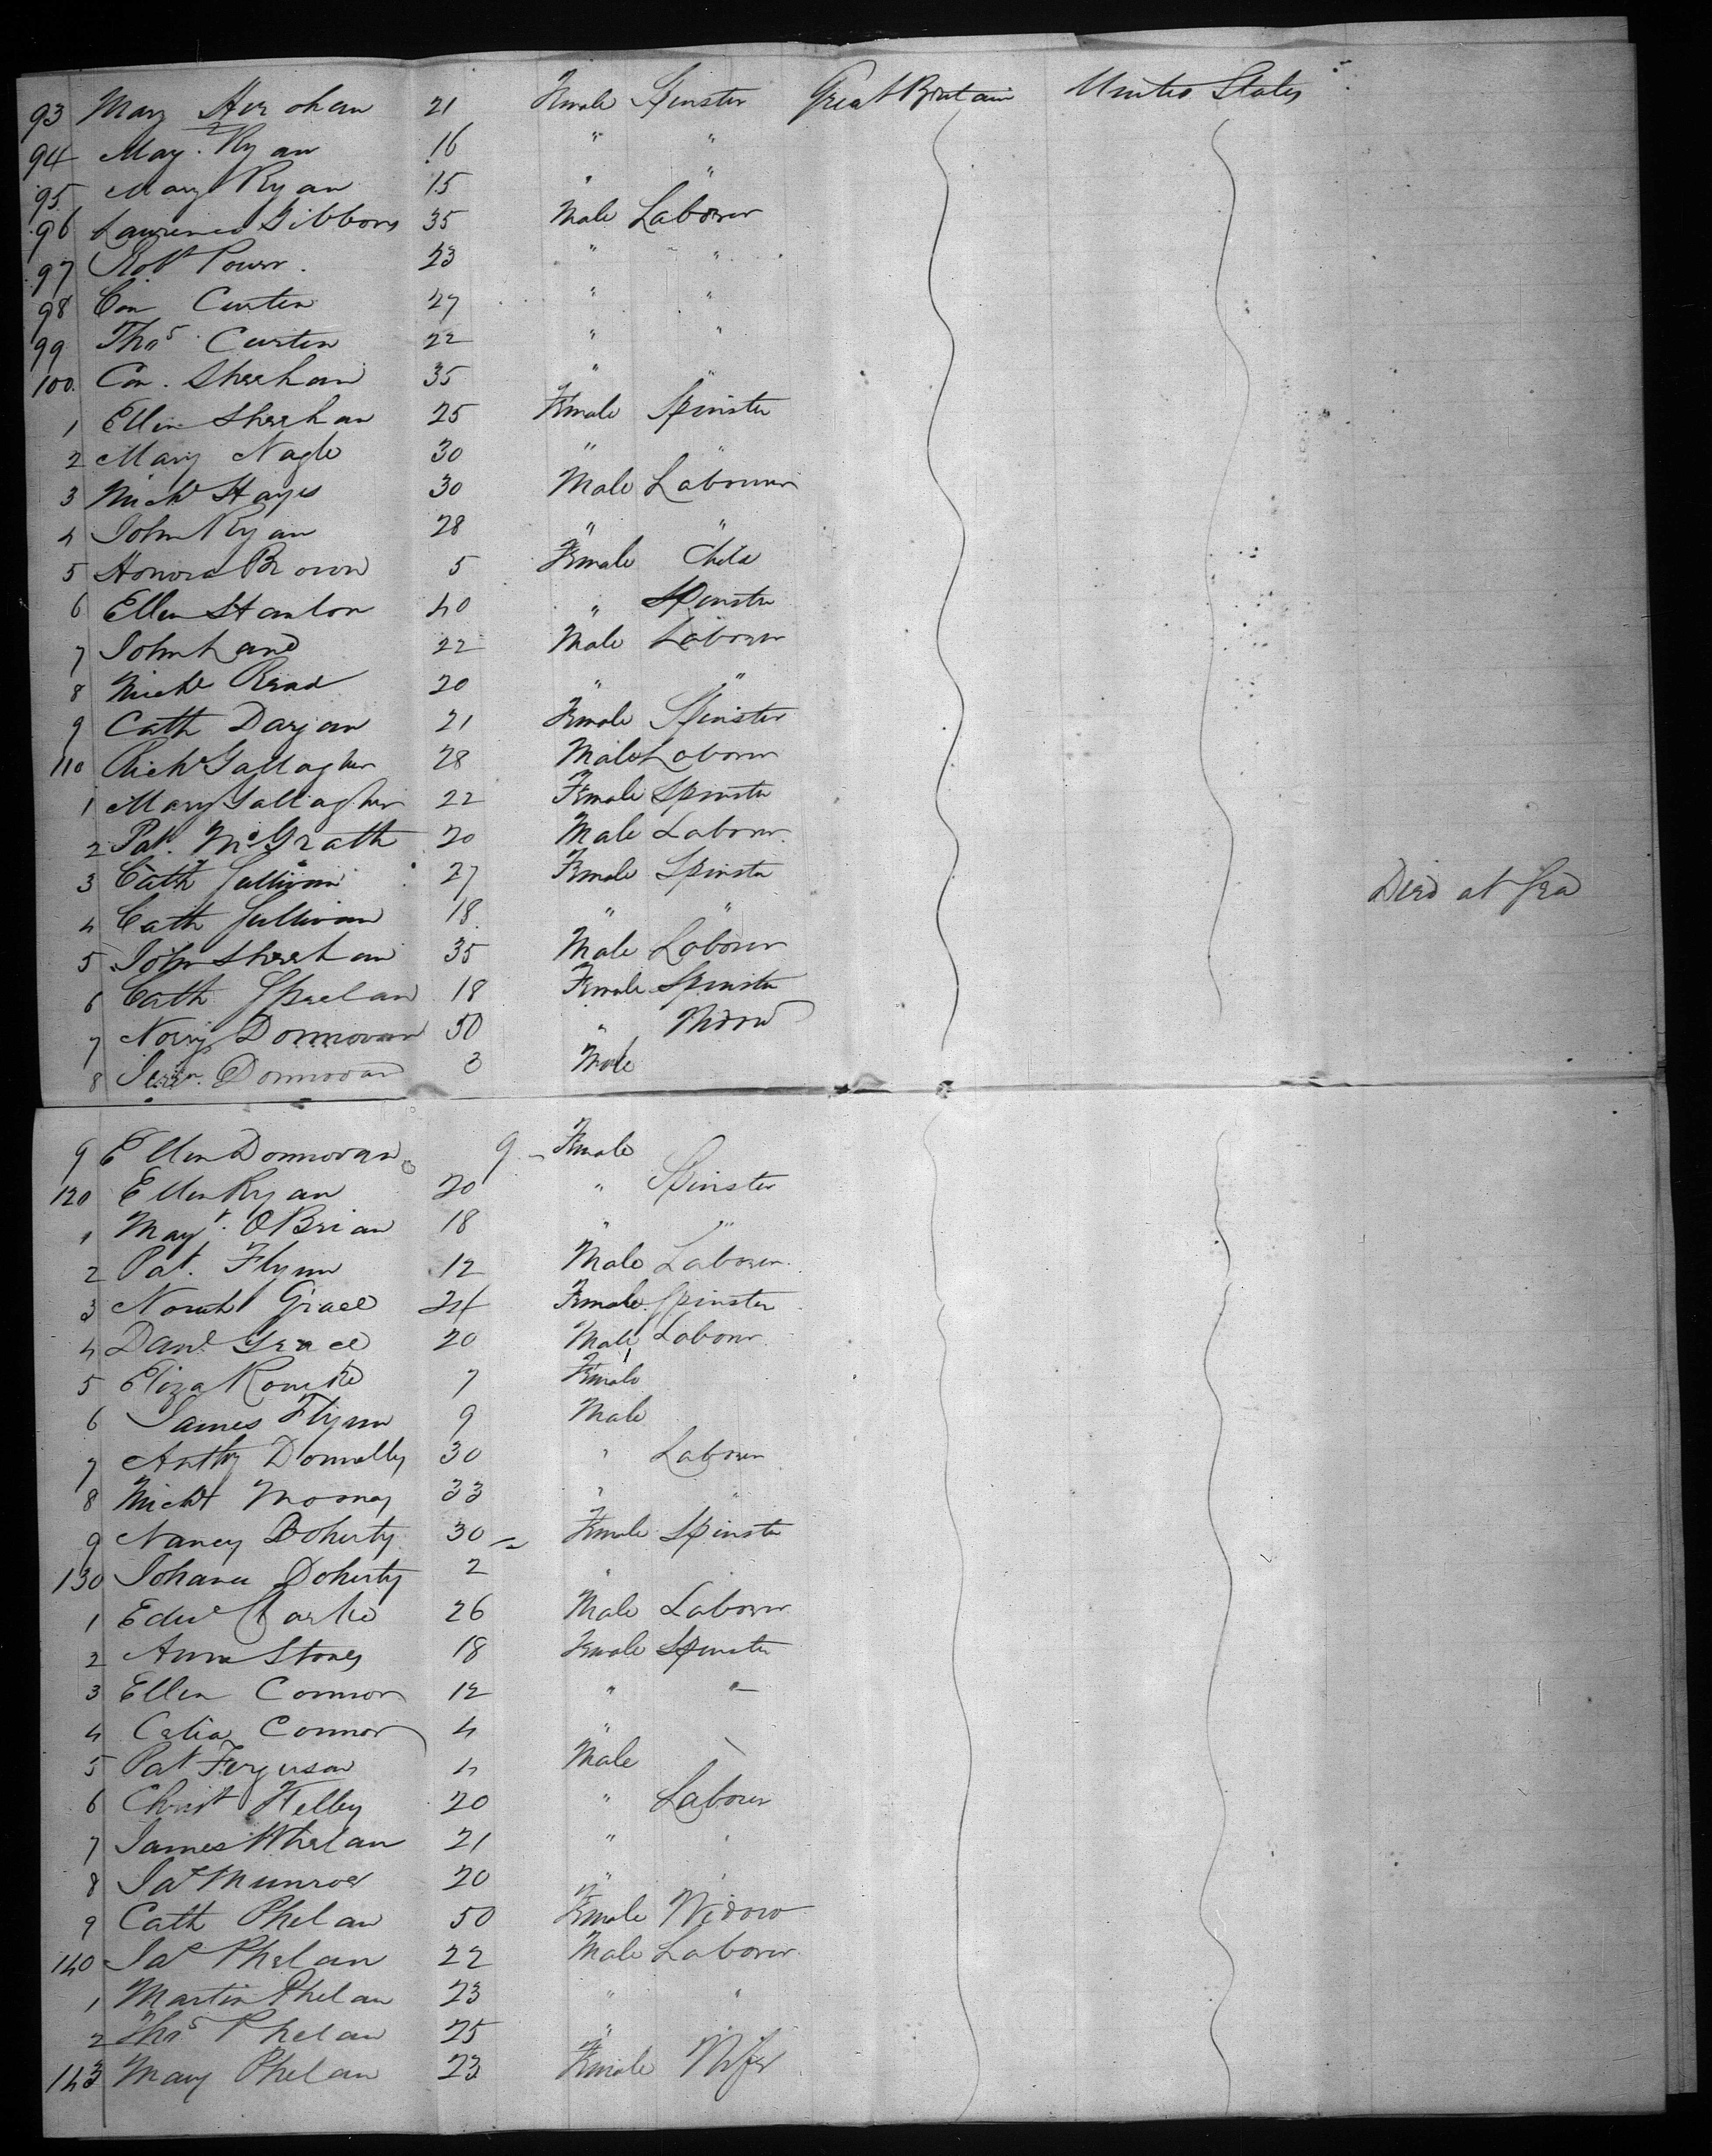 93 Mary Herohan 21 Female Spinster Great Britain United States
94 Mary Ryan 16 " "
95 Mary Ryan 15 " "
96 Laurence Gibbons 35 Male Laborer
97 Robt Power 23 " "
98 Con Curtin 27 " "
99 Thos Curtin 22 " "
100 Con. Sheehan 35 " "
1 Ellen Sheehan 25 Female Spinster
2 Mary Nagle 30 " "
3 Michl Hayes 30 Male Labourer
4 John Ryan 28 " "
5 Honora Brown 5 Female Child
6 Ellen Stanlon 40 " Spinster
7 John Land 22 Male Laborer
8 Michl Read 20 " "
9 Cath Dargan 21 Female Spinster
110 Richd Gallagher 28 Male Laborer
1 Mary Gallagher 22 Female Spinster
2 Pat. McGrath 20 Male Laborer
3 Cath Sullivan 27 Female Spinster
4 Cath Sullivan 18 " " Died at Sea
5 John Sheehan 35 Male Laborer
6 Cath 18 Female Spinster
7 Norry Donnovan 50 " Widow
8 Donnovan 3 Male
9 Ellen Donnovan 9 Female
120 Ellen Ryan 20 " Spinster
1 Mary OBrian 18 " "
2 Pat. Flynn 12 Male Laborer
3 Grace 24 Female Spinster
4 Danl Grace 20 Male Laborer
5 Eliza 7 Female
6 James Flynn 9 Male
7 Anthy Donnelly 30 " Laborer
8 Michl Mooney 33 " "
9 Nancy Doherty 30 Female Spinster
130 Johana Doherty 2 "
1 Edwd Clarke 26 Male Laborer
2 Anna Stones 18 Female Spinster
3 Ellen Connor 12 " "
4 Celia Connor 4 "
5 Pat Ferguson 4 Male
6 Christ Kelley 20 " Laborer
7 James Whelan 21 " "
8 Jas Munroe 20 " "
9 Cath Phelan 50 Female Widow
140 Jas Phelan 22 Male Laborer
1 Martin Phelan 23 " "
2 Thos Phelan 25 "
143 Mary Phelan 23 Female Wife